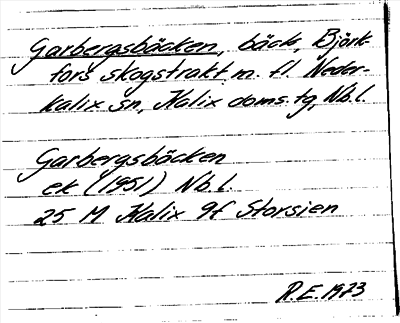 Garbergsbäcken, bäck, Björk-
fors skogstrakt m. fl. Neder-
kalix sn, Kalix doms. tg, Nb. l.
Garbergsbäcken
ek (1951) Nb. l.
25 M Kalix 9f Storsien
R.E. 1973